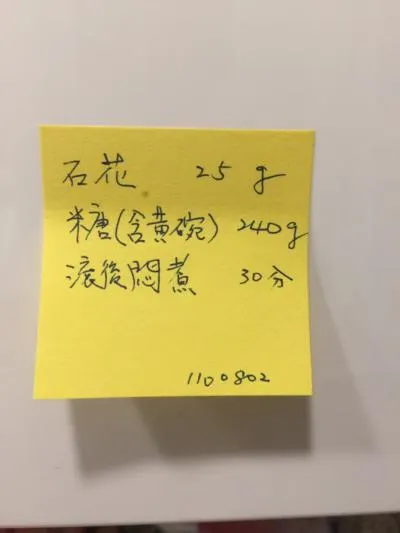 石花 25 g
糖(含黄碗) 240g
滾後悶煮 30分
1100802